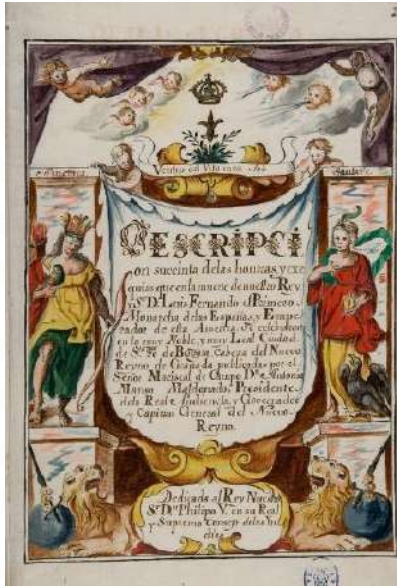 DESCRIPCI
on succinta delas honrras, y exe
quias que en la muerte de nuestro Rey
y Sr. D. Luis Fernando el Primero
Monarcha delas Españas, y Empe
rador de esta America. Se celebraron
en la muy Noble, y muy Leal Ciudad
de Sta. Fe de Bogota, Cabeza del Nuevo
Reyno de Granada publicadas por el
Señor Mariscal de Campo Dn. Antonio
Manso Maldonado, Presidente
dela Real Audiencia, y Governador
y Capitan General del Nuevo
Reyno.
Dedicada al Rey Nuestro
Sr. Dn. Philipo V. en su Real
y Supremo Consejo delas Yn
dias